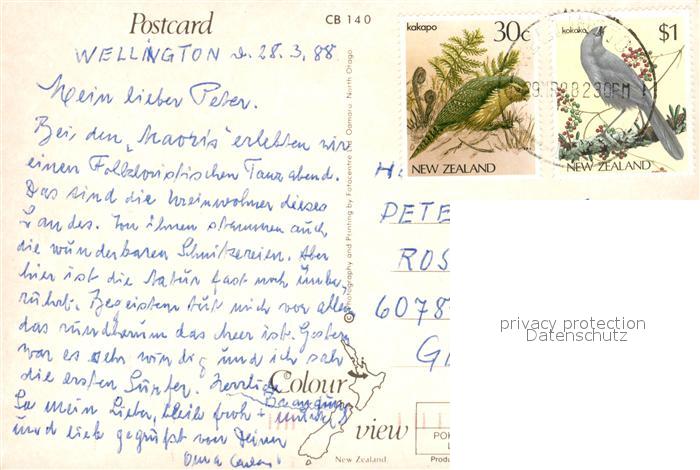 Postcard
CB 140
WELLINGTON d. 28.3.88
Mein lieber Peter.
Bei den „Maoris" erlebten wir
einen Folkloristischen Tanzabend.
Das sind die Ureinwohner dieses
Landes. Von ihnen stammen auch
die wunderbaren Schnitzereien. Aber
hier ist die Natur fast noch unbe-
rührt. Begeistern tut mich vor allem
das rundherum das Meer ist. Gestern
war es sehr windig und ich sah
die ersten Surfer. Herrliche
So mein Lieber, bleib froh +
und lieb gegrüßt von Deiner
Oma
Photography and Printing by Fotocentre Ltd, Oamaru, North Otago.
Colour
view
New Zealand
kakapo
30c
NEW ZEALAND
kokako
$1
NEW ZEALAND
230PM
H
PETE
ROS
6078
G
PO
L
Produ
privacy protection
Datenschutz